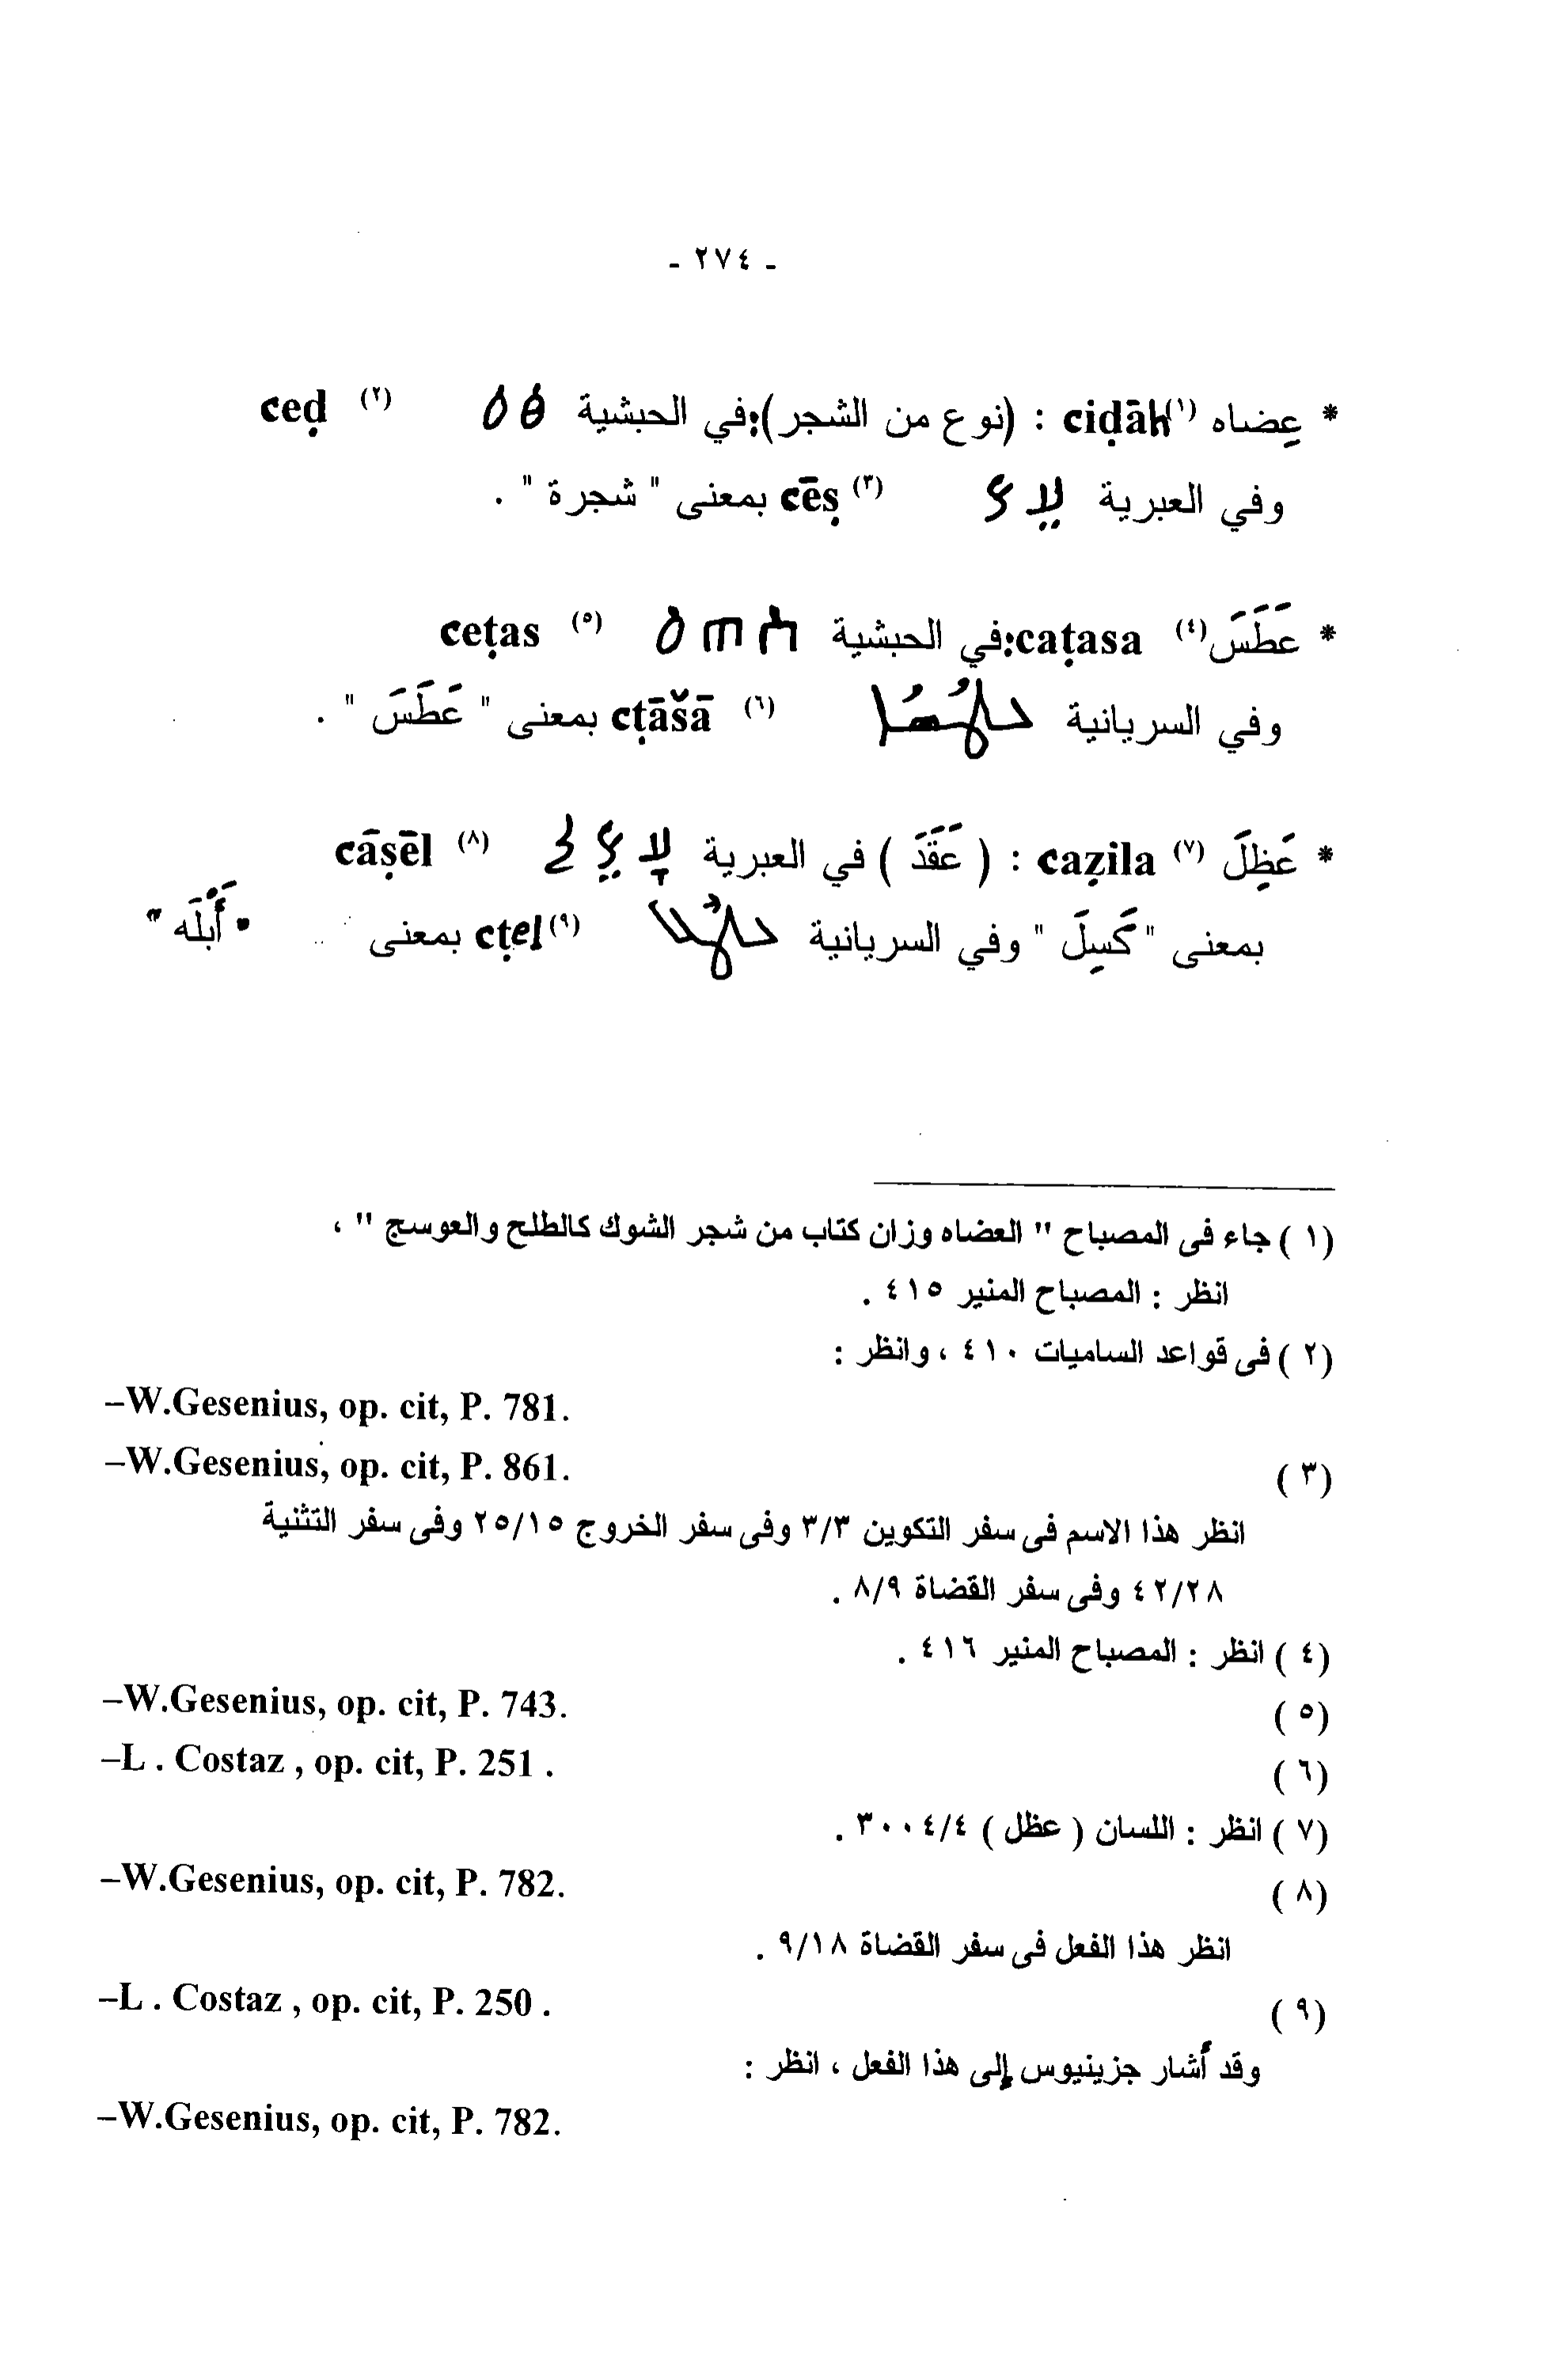 - ٢٧٤ -
* عِضاه (١) ciḍāh : (نوع من الشجر):في الحبشية ዕፅ (٢) ceḍ
وفي العبرية עֵץ (٣) cēṣ بمعنى " شجرة " .
* عَطَسَ (٤) caṭasa:في الحبشية ዐጠሰ (٥) ceṭas
وفي السريانية ܥܛܳܫܳܐ (٦) cṭāšā بمعنى " عَطَسَ " .
* عَظِلَ (٧) caẓila : ( عَقَدَ ) في العبرية עָצֵל (٨) cāṣēl
بمعنى " كَسِلَ " وفي السريانية ܥܛܠ (٩) cṭel بمعنى " أَبْلَه "
(١) جاء فى المصباح " العضاه وزان كتاب من شجر الشوك كالطلح والعوسج " ،
انظر : المصباح المنير ٤١٥ .
(٢) فى قواعد الساميات ٤١٠ ، وانظر :
–W.Gesenius, op. cit, P. 781.
(٣) –W.Gesenius, op. cit, P. 861.
انظر هذا الاسم فى سفر التكوين ٣/٣ وفى سفر الخروج ٢٥/١٥ وفى سفر التثنية
٤٢/٢٨ وفى سفر القضاة ٨/٩ .
(٤) انظر : المصباح المنير ٤١٦ .
(٥) –W.Gesenius, op. cit, P. 743.
(٦) –L . Costaz , op. cit, P. 251 .
(٧) انظر : اللسان ( عظل ) ٣٠٠٤/٤ .
(٨) –W.Gesenius, op. cit, P. 782.
انظر هذا الفعل فى سفر القضاة ٩/١٨ .
(٩) –L . Costaz , op. cit, P. 250 .
وقد أشار جزينيوس إلى هذا الفعل ، انظر :
–W.Gesenius, op. cit, P. 782.